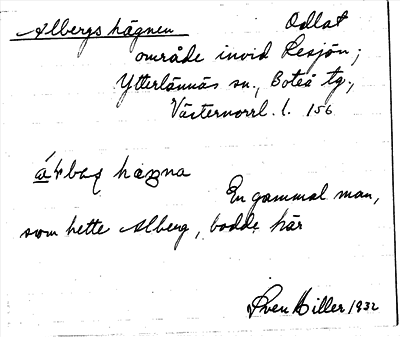 Albergs hägnen Odlat
område invid Lesjön;
Ytterlännäs sn., Boteå tg.,
Västernorrl. l. 156
hagna
En gammal man,
som hette Alberg, bodde här
Sven Hiller 1932